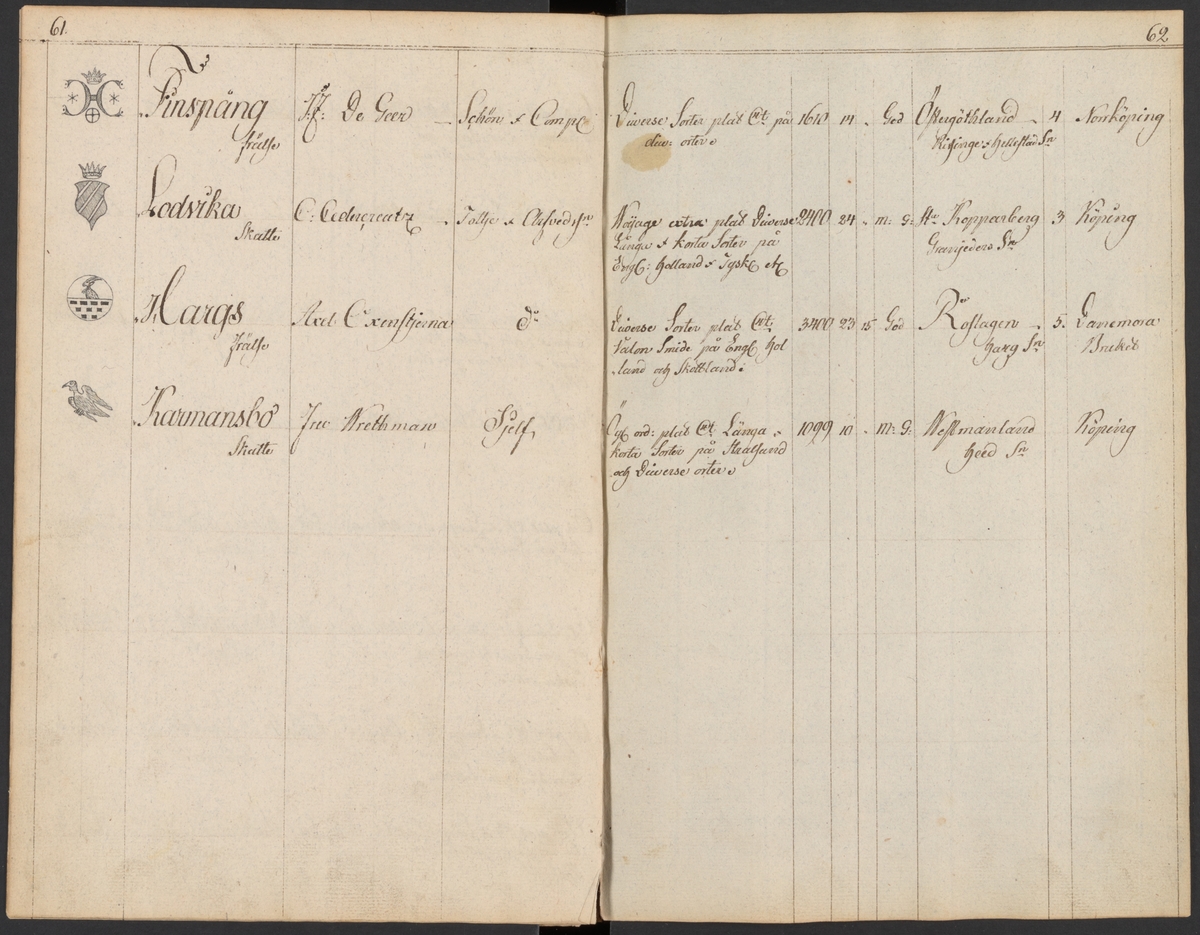 61.
62
Finspång
frälse
De Geer
Schön & Comp
Diverse Sorter plåt på
div: orter
1610 14 - God
Östergöthland
4 Norrköping
Lodvika
Skatte
C:
Tottie & Arfvedsn
extra plåt Diverse
Långa & korta Sorter på
Engl: Holland & Tysk etc
2400 24 - m: G:
Kopparberg
Sn
3 Köping
Hargs
frälse
Axel Oxenstjerna
do
Diverse Sorter plåt
Valon Smide på Engl Hol
land och Skottland
3400 23 15 God
Roslagen
Harg Sn
5. Dannemora
Bruket
Karmansbo
Skatte
Wrethman
Sjelf
ord: plåt Långa &
korta Sorter på
och Diverse orter
1099 10 - M: G:
Westmanland
Hed Sn
Köping